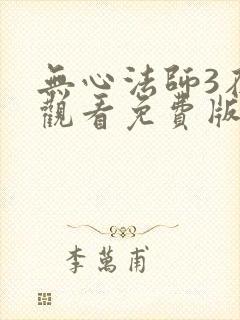 無心法師3
觀看免費版
李萬甫